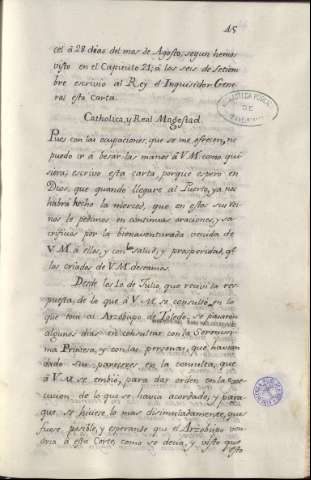 45
cel à 28 dias del mes de Agosto, segun hemos
visto en el Capitulo 21; à los seis de Setiem
bre escrivio al Rey el Inquisidor Gene
ral esta Carta.
Catholica, y Real Magestad.
Pues con las ocupaciones, que se me ofrecen, no
puedo ir à besar las manos à V.M. como qui
siera; escrivo esta carta, porque espero en
Dios, que quando llegare al Puerto, ya nos
habrà hecho la merced, que en estos sus Rei
nos le pedimos en continuas oraciones, y sa
crificios por la bienaventurada venida de
V.M. à ellos, y con la salud, y prosperidad, qe.
los criados de V.M. deseamos.
Desde les 10 de Julio, que recivi la res
puesta, de lo que à V.M. se consultò, en lo
que toca al Arzobispo de Toledo, se pasaron
algunos dias en consultar con la Serenissi
ma Princesa, y con las personas, que havian
dado sus pareceres en la consulta, que
à V.M. se embiò, para dar orden en la exe
cucion de lo que se havia acordado, y para
que se hiciese lo mas disimuladamente, que
fuese posible, y esperando que el Arzobispo ven
dria à esta Corte, como se decia, y visto que
esto